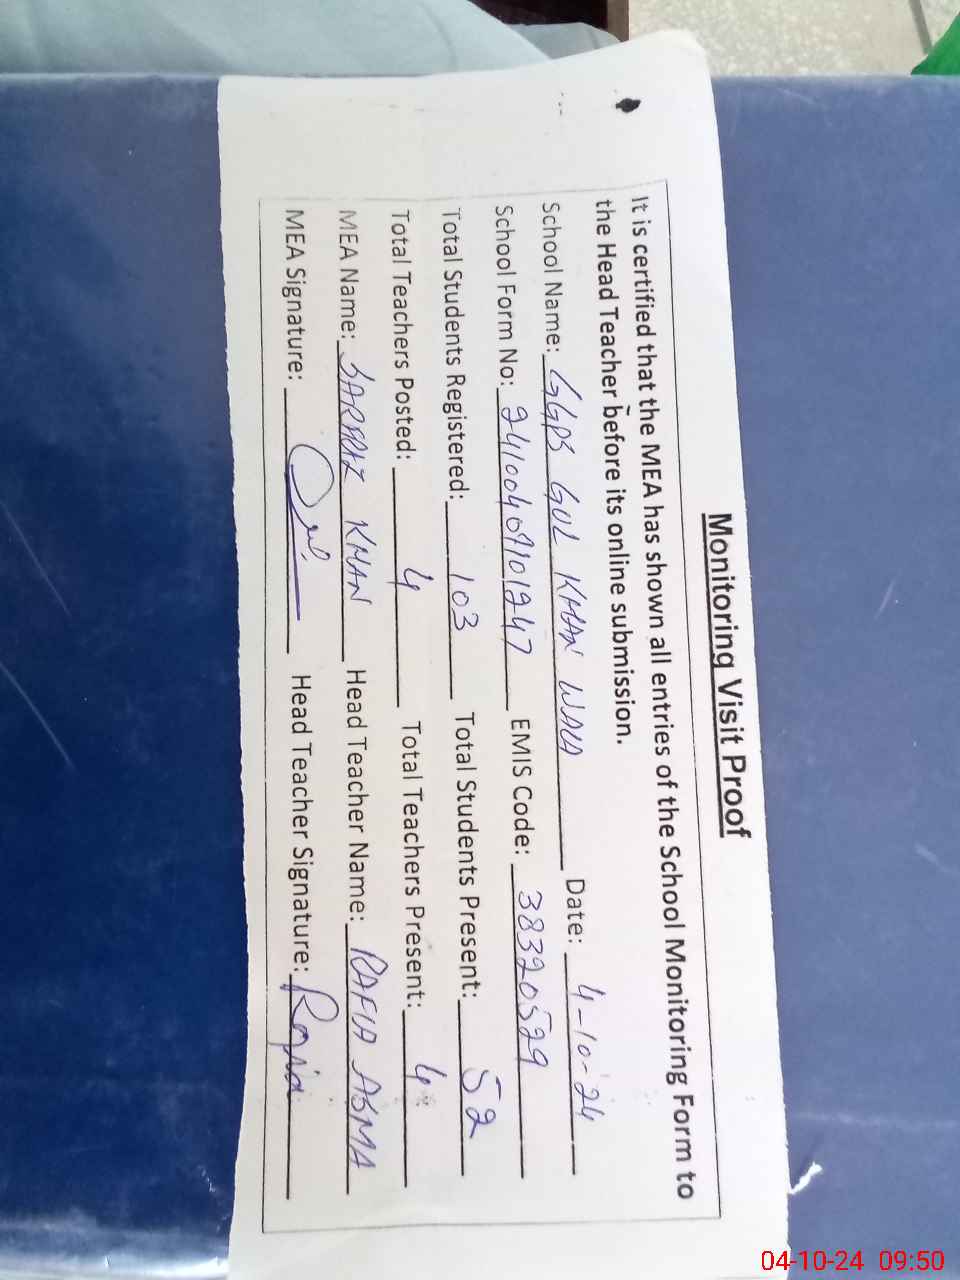 Monitoring Visit Proof
It is certified that the MEA has shown all entries of the School Monitoring Form to
the Head Teacher before its online submission.
School Name: GGPS GUL KHAN WALA Date: 4-10-24
School Form No: 24100409101247 EMIS Code: 38320529
Total Students Registered: 103 Total Students Present: 52
Total Teachers Posted: 4 Total Teachers Present: 4
MEA Name: SARFRAZ KHAN Head Teacher Name: RAFIA ASMA
MEA Signature: Head Teacher Signature: Rafia
04-10-24 09:50